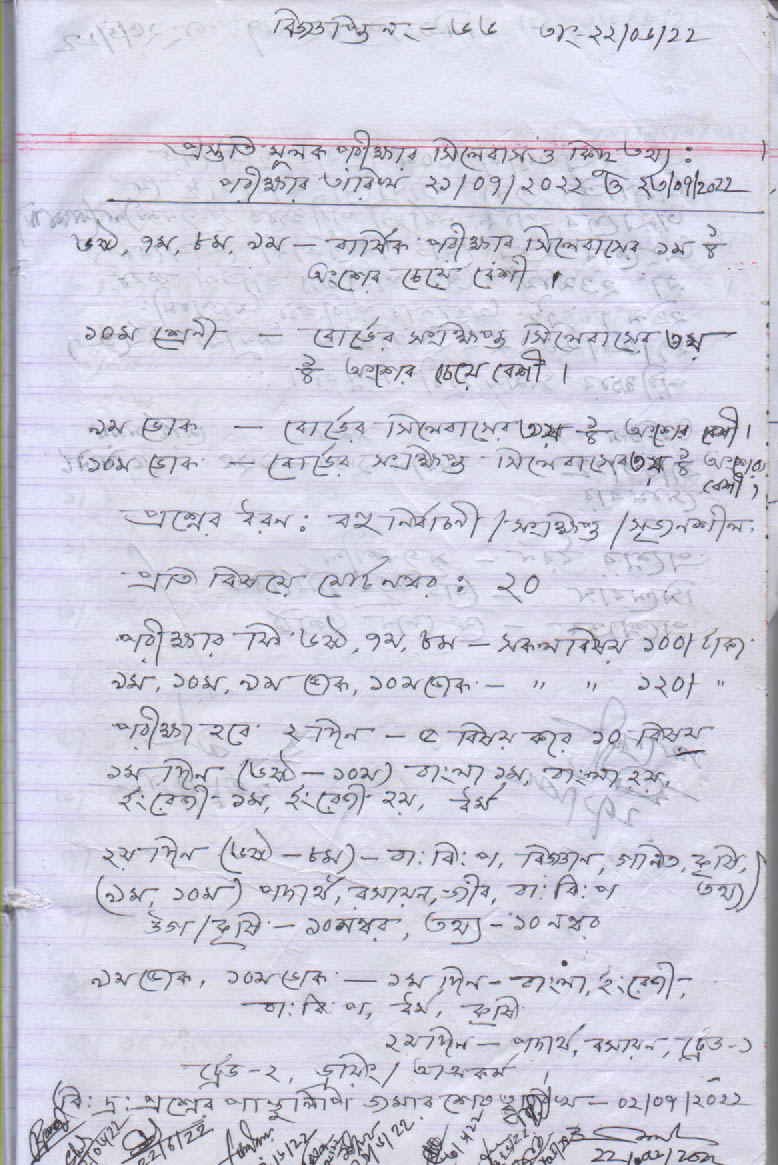 বিজ্ঞপ্তি নং - ৬৬ তাং-২২/০৬/২২
প্রস্তুতি মূলক পরীক্ষার সিলেবাস ও কিছু তথ্য :
পরীক্ষার তারিখ ২১/০৭/২০২২ ও ২৩/০৭/২০২২
৬ষ্ঠ, ৭ম, ৮ম, ৯ম - বার্ষিক পরীক্ষার সিলেবাসের ১ম
অংশের চেয়ে বেশী ।
১০ম শ্রেণী - বোর্ডের সংক্ষিপ্ত সিলেবাসের ৩য়
অংশের চেয়ে বেশী ।
৯ম ভোক - বোর্ডের সিলেবাসের ৩য় অংশের বেশী ।
১০ম ভোক - বোর্ডের সংক্ষিপ্ত সিলেবাসের ৩য় অংশের
বেশী ।
প্রশ্নের ধরন : বহু নির্বাচনী / সংক্ষিপ্ত / সৃজনশীল
প্রতি বিষয়ে মোট নম্বর : ২০
পরীক্ষার ফি ৬ষ্ঠ, ৭ম, ৮ম - সকল বিষয় ১০০/ টাকা
৯ম, ১০ম, ৯ম ভোক, ১০ম ভোক - " " ১২০/ "
পরীক্ষা হবে ২ দিন - ৫ বিষয় করে ১০ বিষয়
১ম দিন (৬ষ্ঠ - ১০ম) বাংলা ১ম, বাংলা ২য়,
ইংরেজী ১ম, ইংরেজী ২য়, ধর্ম
২য় দিন (৬ষ্ঠ - ৮ম) - বা: বি: প, বিজ্ঞান, গণিত, কৃষি,
(৯ম, ১০ম) পদার্থ, রসায়ন, জীব, বা: বি: প তথ্য)
উগ/কৃষি - ১০ নম্বর, তথ্য - ১০ নম্বর
৯ম ভোক, ১০ম ভোক - ১ম দিন - বাংলা, ইংরেজী,
বা: বি: প, ধর্ম, কৃষি
২য় দিন - পদার্থ, রসায়ন, ট্রেড-১
ট্রেড-২, ড্রয়িং / আত্মকর্ম
বি: দ্র: প্রশ্নের পান্ডুলিপি জমার শেষ তারিখ - ০২/০৭/২০২২